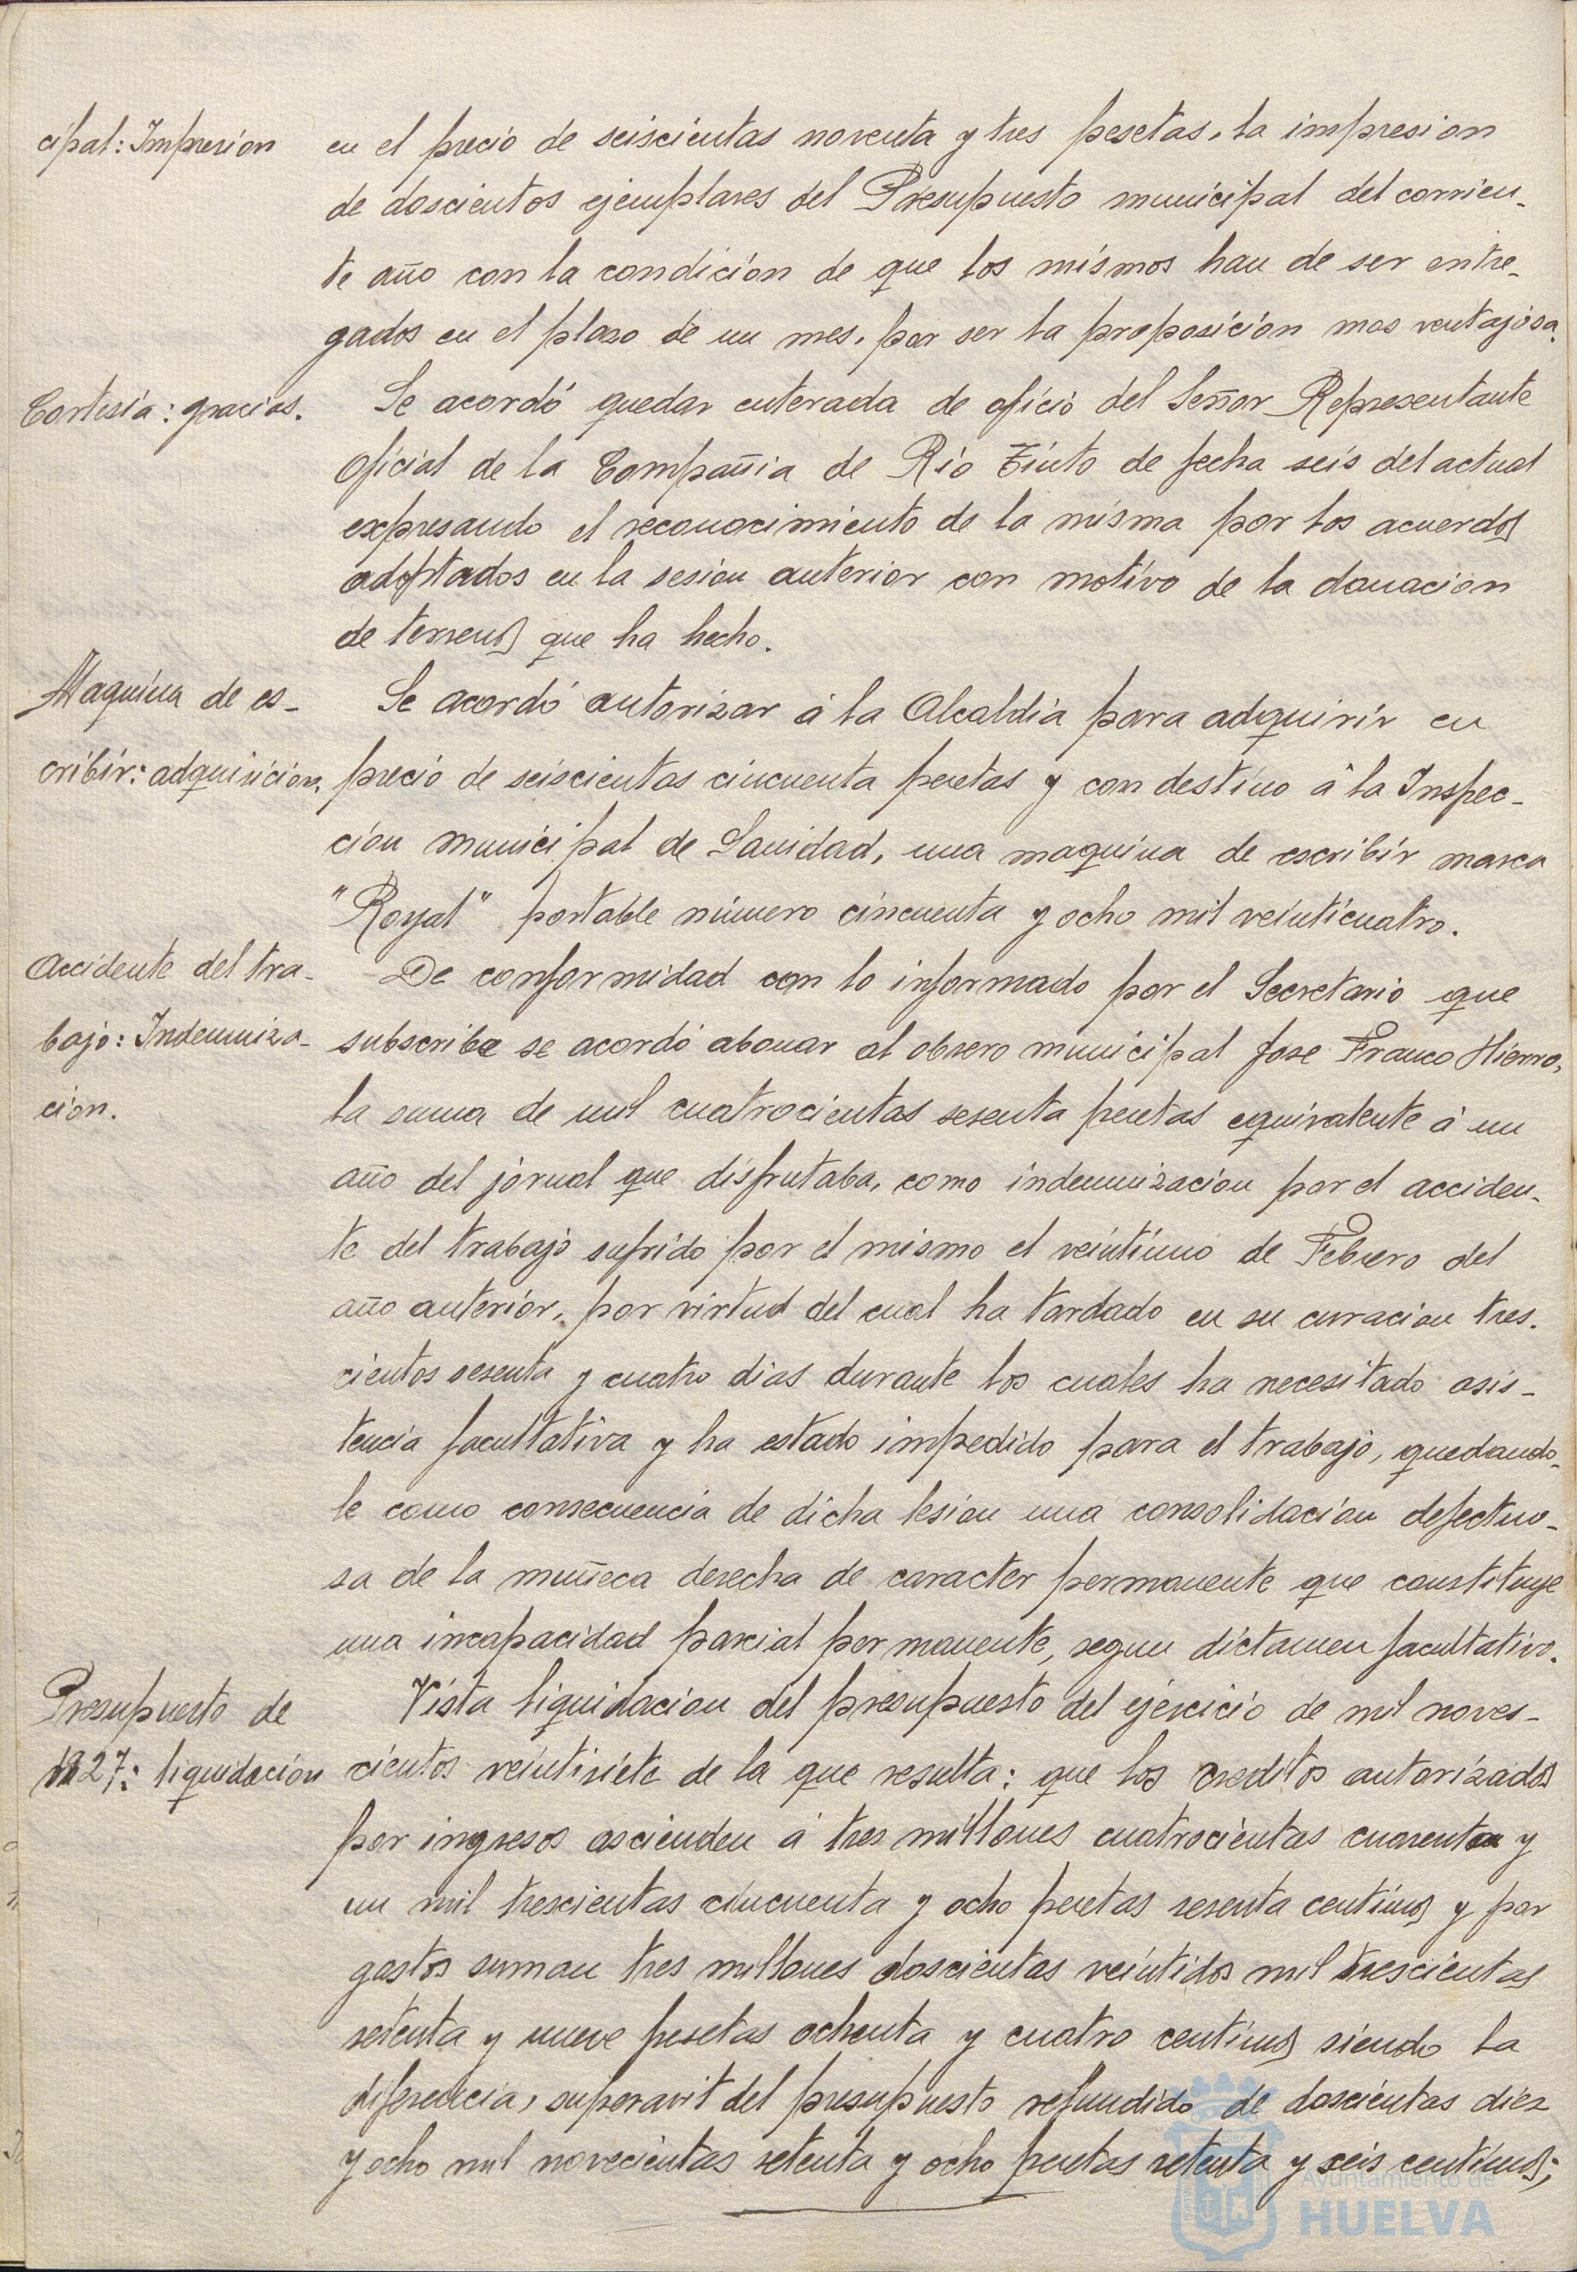 cipal: Impresion
en el precio de seiscientas noventa y tres pesetas, la impresion
de doscientos ejemplares del Presupuesto municipal del corrien-
te año con la condición de que los mismos han de ser entre-
gados en el plazo de un mes, por ser la proposición mas ventajosa.
Cortesía: gracias.
Se acordó quedar enterada de oficio del Señor Representante
Oficial de la Compañia de Rio Tinto de fecha seis del actual
expresando el reconocimiento de la misma por los acuerdos
adoptados en la sesion anterior con motivo de la donacion
de terrenos que ha hecho.
Maquina de es-
cribir: adquisicion.
Se acordó autorizar á la Alcaldia para adquirir en
precio de seiscientas cincuenta pesetas y con destino á la Inspec-
cion municipal de Sanidad, una maquina de escribir marca
"Royal" portable número cincuenta y ocho mil veinticuatro.
Accidente del tra-
bajo: Indemniza-
cion.
De conformidad con lo informado por el Secretario que
subscribe se acordó abonar al obrero municipal Jose Franco Hierro,
la suma de mil cuatrocientas sesenta pesetas equivalente á un
año del jornal que disfrutaba, como indemnización por el acciden-
te del trabajo sufrido por el mismo el veintiuno de Febrero del
año anterior, por virtud del cual ha tardado en su curacion tres-
cientos sesenta y cuatro dias durante los cuales ha necesitado asis-
tencia facultativa y ha estado impedido para el trabajo, quedando-
le como consecuencia de dicha lesion una consolidacion defectuo-
sa de la muñeca derecha de caracter permanente que constituye
una incapacidad parcial permanente, segun dictamen facultativo.
Presupuesto de
1927: liquidación
Vista liquidacion del presupuesto del ejercicio de mil noves-
cientos veintisiete de la que resulta: que los creditos autorizados
por ingresos ascienden á tres millones cuatrocientas cuarenta y
un mil trescientas cincuenta y ocho pesetas sesenta centimos y por
gastos suman tres millones doscientas veintidos mil trescientas
setenta y nueve pesetas ochenta y cuatro centimos siendo la
diferencia, superavit del presupuesto refundido de doscientas diez
y ocho mil novecientas setenta y ocho pesetas setenta y seis centimos;
Ayuntamiento de
HUELVA